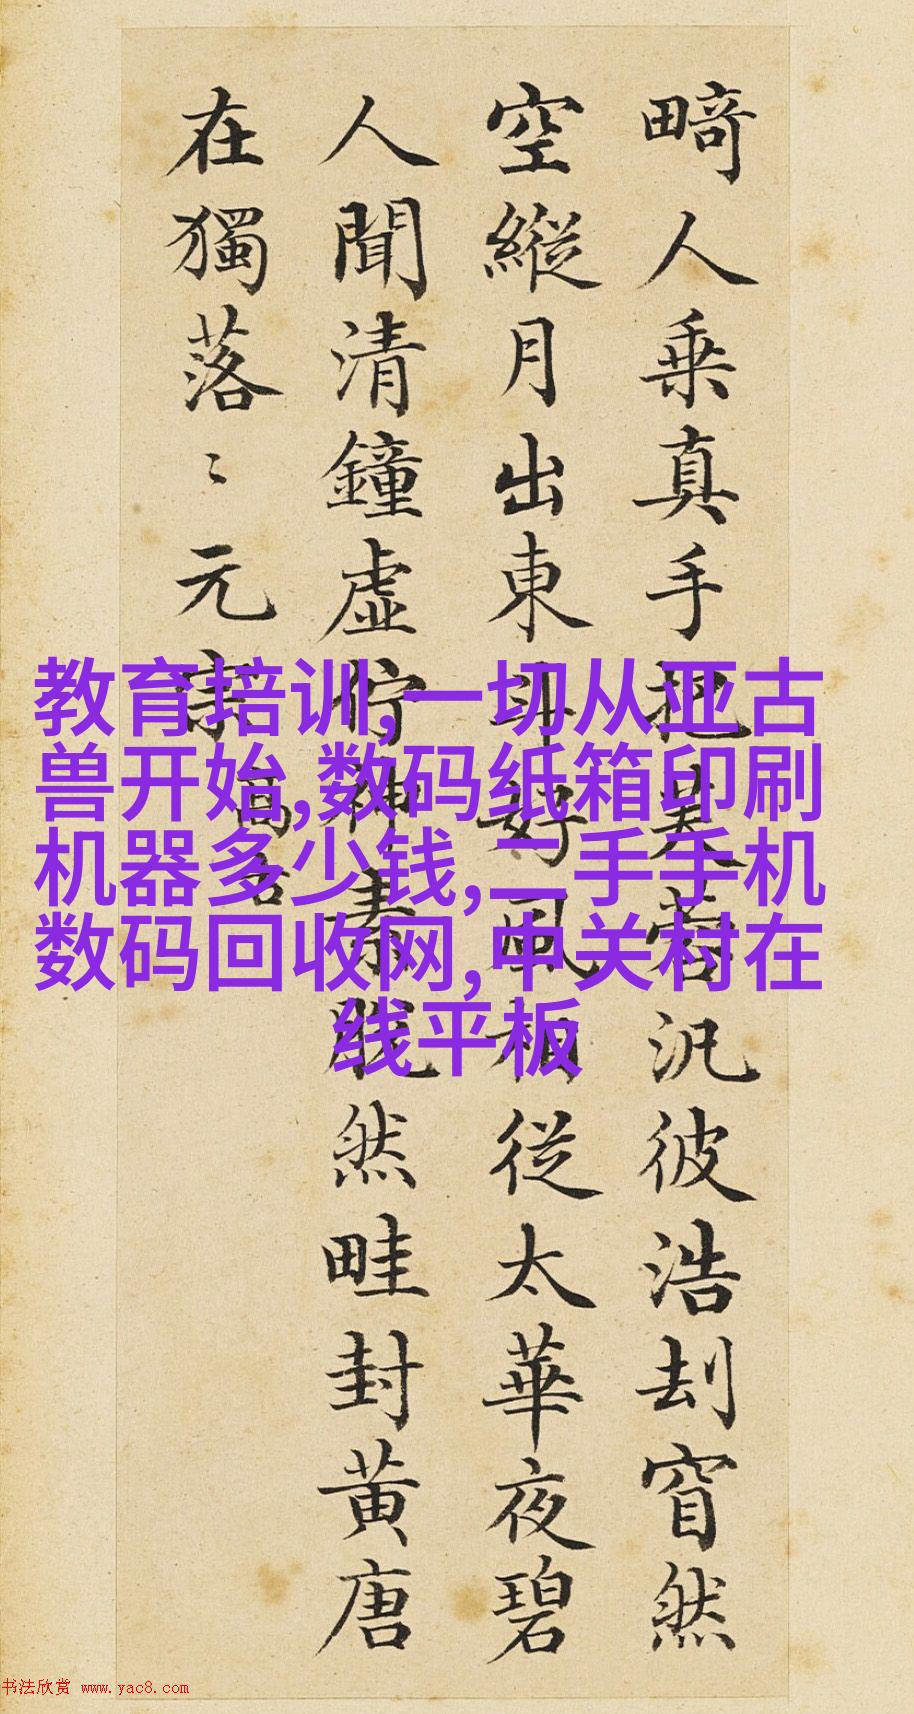 畸人乘真手把芙蓉汎彼浩刦窅然
空縱月出東斗好風相從太華夜碧
人聞清鐘虛佇神素脫然畦封黃唐
在獨落〻元宗
高古
教育培训,一切从亚古
兽开始,数码纸箱印刷
机器多少钱,二手手机
数码回收网,中关村在
线平板
书法欣赏 www.yac8.com